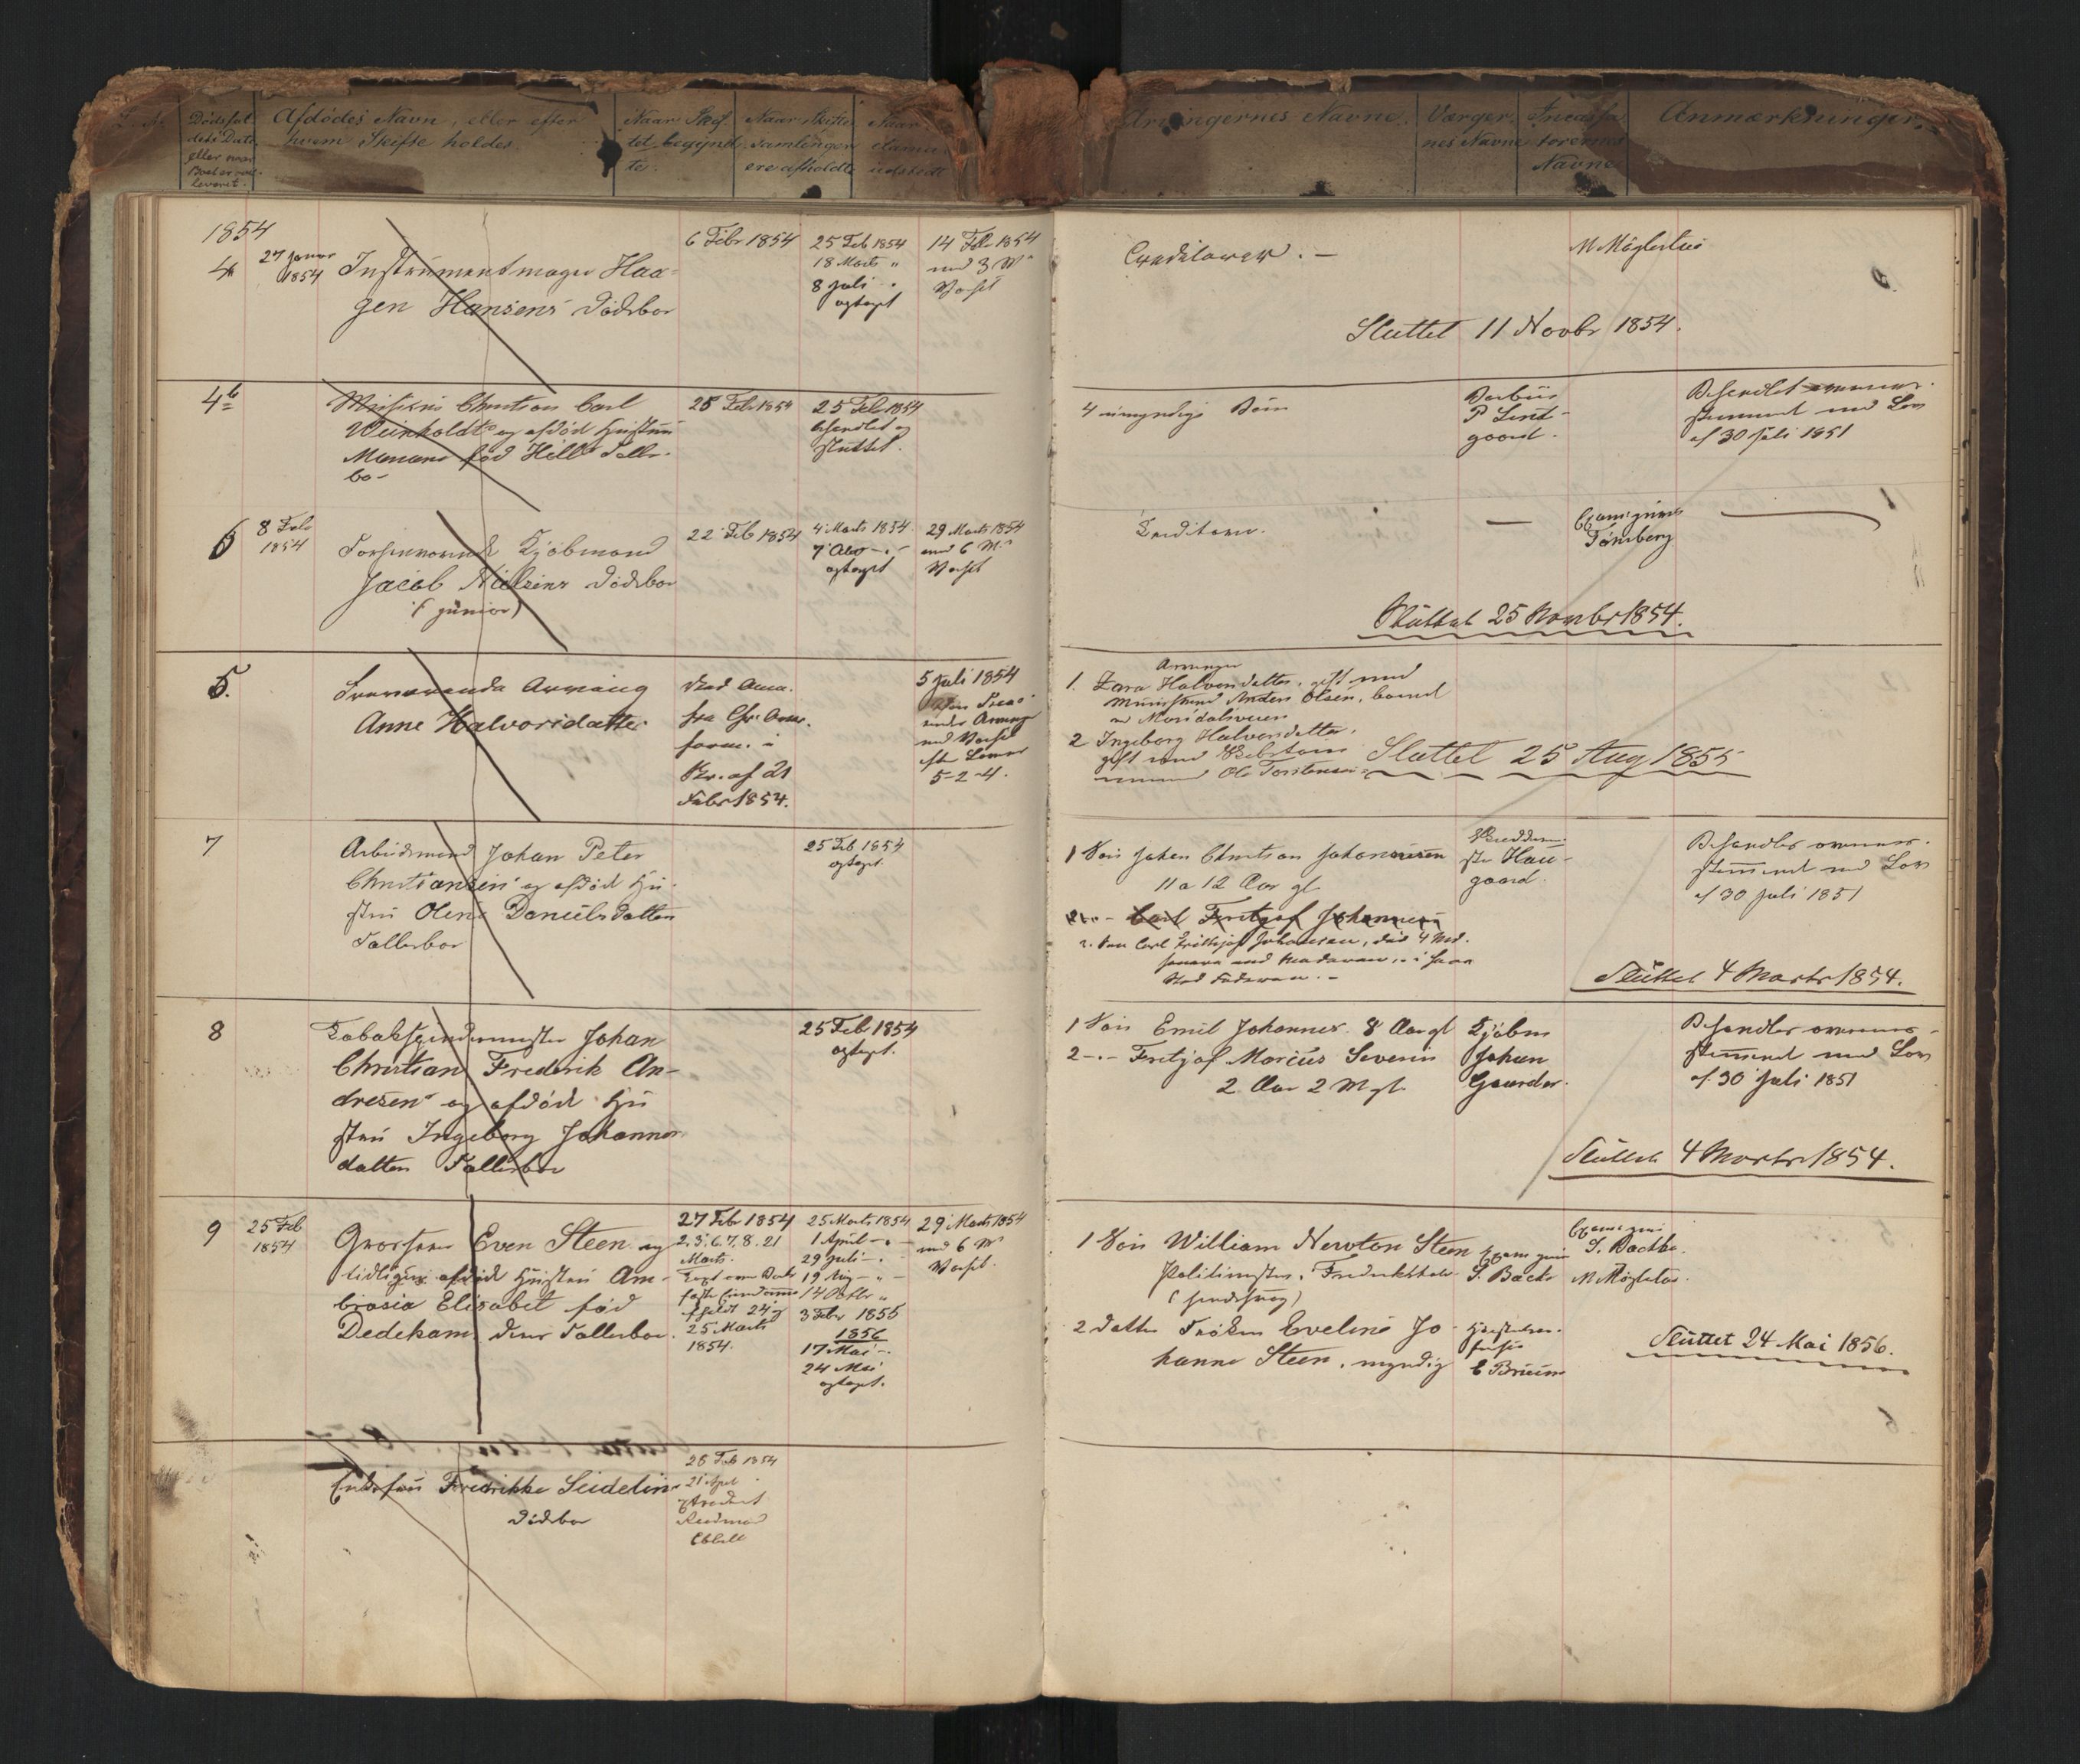 Dødsfal
dets Dato
eller naar
Boet er
leveret.
Afdødes Navn, eller efter
hvem Skifte holdes.
Naar Skif-
tet begynd-
te.
Naar Skifte
samlinger
ere afholdte
Naar
udstedt
Arvingernes Navne.
Værger-
nes Navne
Incassa
torernes
Navne
Anmærkninger.
1854
4a
27 Januar
1854
Instrumentmager Haa-
gen Hansens Dødsbo
6 Febr 1854
25 Feb 1854
18 Marts "
8 Juli "
optaget
14 Febr 1854
med 3 M
Varsel
Creditorer. —
M Møglestue
Sluttet 11 Novbr 1854.
4b
Christian Carl
Weinholdts og afdød Hustru
Mariane fød Hill Fælles-
bo -
25 Febr 1854
25 Febr 1854
behandlet og
sluttet.
4 umyndige Børn
P Lind-
gaard.
Behandlet overens-
stemmend med Lov
af 30 Juli 1851
6
8 Feb
1854
Forhenværende Kjøbmand
Jacob Nielsens Dødsbo
(junior)
22 Feb 1854
4 Marts 1854.
7 Octo — " -
optaget
29 Marts 1854
med 6 M
Varsel
Creditorer.
—
Tønsberg
Sluttet 25 Novmbr 1854.
5.
Fraværende Arving
Anne Halvorsdatter
fra Chr. Amt.
form. i
Br. af 21
Febr 1854.
5 Juli 1854
med Varsel
efter Loven
5-2-4.
Arvinger
1. Halvorsdatter, gift med
Anders Olsen, boend
2 Ingeborg Halvorsdatter,
gift med
Ole Torstensen
Sluttet 25 Aug 1855
7
Arbeidsmand Johan Peter
Christiansens og afdød Hu-
stru Oline Danielsdatter
Fællesbo
25 Feb 1854
optaget.
1 Søn Johan Christian Johannesen
11 a 12 Aar gl
Carl Fritjof Johannesen
2. Søn Carl Frithjof Johannesen, død 4 Md.
Hau-
gaard.
Behandles overens-
stemmend med Lov
af 30 Juli 1851
Sluttet 4 Marts 1854.
8
Tobakspindemester Johan
Christian Frederik An-
dresens og afdød Hu
stru Ingeborg Johannes
datter Fællesbo
25 Febr 1854
optaget.
1 Søn Emil Johannes 8 Aar gl
2 -"- Fritjof Marius Severin
2 Aar 2 M gl.
Kjøbm
Johan
Gaarder.
Behandles overens-
stemmend med Lov
af 30 Juli 1851
Sluttet 4 Marts 1854.
9
25 Feb
1854
Grosserer Even Steen og
tidligere afdød Hustru Am-
brosia Elisabet fød
Dedekam deres Fællesbo.
27 Febr 1854
2, 3, 6, 7, 8, 21
Marts.
24 og
25 Marts
1854.
25 Marts 1854
1 April - " -
29 Juli - " -
19 Aug - " -
14 Octbr "
3 Febr 1855
1856
17 Mai -
24 Mai
optaget.
29 Marts 1854
med 6 M
Varsel.
1 Søn William Newton Steen
Politimester, Frederikshald
2 Datter Frøken Eveline Jo-
hanne Steen, myndig
S. Bache
S. Bache
M Møglestue.
E Bruun
Sluttet 24 Mai 1856.
Enkefru Fredrikke Seidelins
Dødsbo
28 Feb 1854
21 April